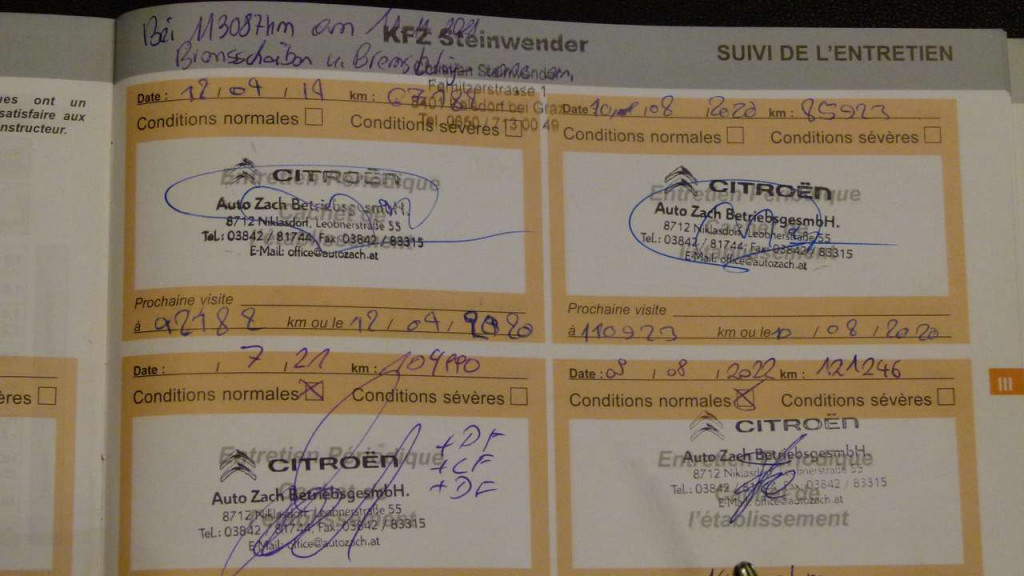 Bei 113087km am 11.11.2021
KFZ Steinwender
SUIVI DE L'ENTRETIEN
Bremsscheiben u. Brems
Fernitzerstrasse 1
bei Graz
Tel. 0650 / 713 00 49
ues ont un
satisfaire aux
nstructeur.
Date : 12 , 04 , 19 km : 67188
Conditions normales Conditions sévères
Entretien Périodique
Cachet de
CITROËN
Auto Zach BetriebsgesmbH.
8712 Niklasdorf, Leobnerstraße 55
Tel.: 03842 / 81744, Fax: 03842 / 83315
E-Mail: office@autozach.at
Prochaine visite
à 92188 km ou le 12 , 04 , 2020
Date : 10 , 08 2020 km : 85923
Conditions normales Conditions sévères
Entretien Périodique
CITROËN
Auto Zach BetriebsgesmbH.
8712 Niklasdorf, Leobnerstraße 55
Tel.: 03842 / 81744, Fax: 03842 / 83315
E-Mail: office@autozach.at
Prochaine visite
à 110923 km ou le 10 , 08 , 2020
ères
Date : , 7 , 21 km : 104990
Conditions normales Conditions sévères
Entretien Périodique
CITROËN
Auto Zach BetriebsgesmbH.
8712 Niklasdorf, Leobnerstraße 55
Tel.: 03842 / 81744, Fax: 03842 / 83315
E-Mail: office@autozach.at
+DF
+CF
+DF
Date : 09 , 08 , 2022 km : 121246
Conditions normales Conditions sévères
Entretien Périodique
CITROËN
Auto Zach BetriebsgesmbH.
8712 Niklasdorf, Leobnerstraße 55
Tel.: 03842 / 81744, Fax: 03842 / 83315
E-Mail: office@autozach.at
de
l'établissement
III